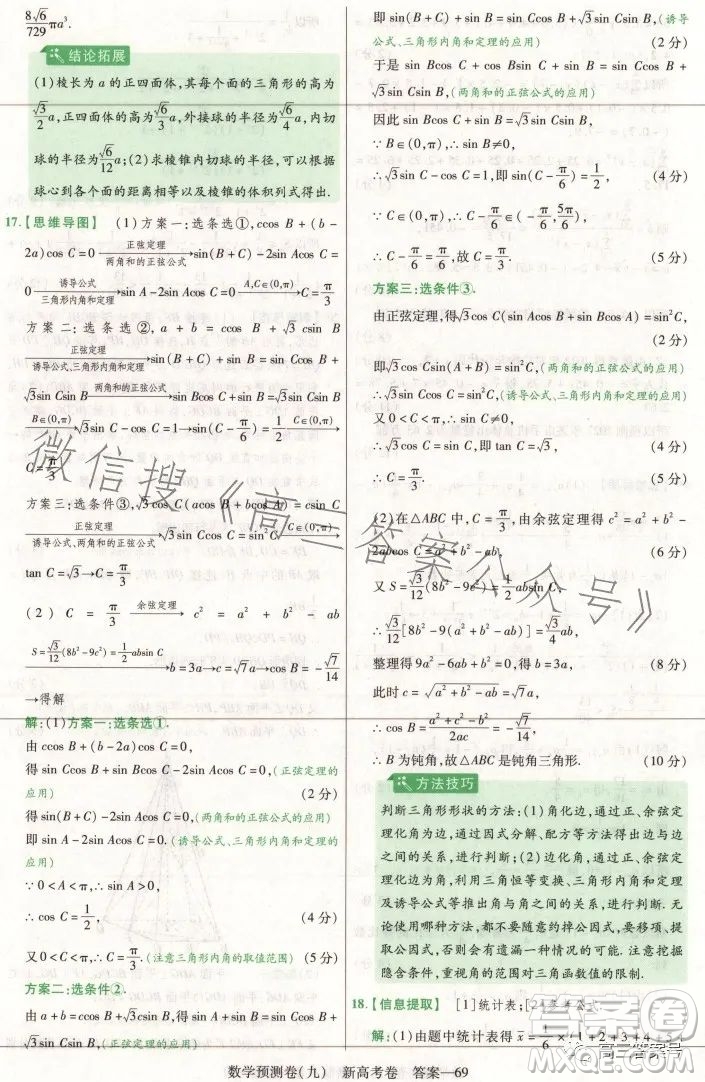 8√6/729 πa³.
结论拓展
(1)棱长为 a 的正四面体,其每个面的三角形的高为
√3/2 a,正四面体的高为√6/3 a,外接球的半径为√6/4 a,内切
球的半径为√6/12 a;(2)求棱锥内切球的半径,可以根据
球心到各个面的距离相等以及棱锥的体积列式得出.
17.【思维导图】 (1)方案一:选条选①,ccos B+(b-
2a)cos C=0 —正弦定理/两角和的正弦公式→sin(B+C)-2sin Acos C=
0 —诱导公式/三角形内角和定理→sin A-2sin Acos C=0 —A,C∈(0,π)→C=π/3
方案二:选条选②,a+b=ccos B+√3csin B
—正弦定理/诱导公式、三角形内角和定理→sin(B+C)+sin B=sin Ccos B+
√3sin Csin B —B∈(0,π)→√3sin C-cos C=1→sin(C-π/6)=1/2 —C∈(0,π)→
C=π/3
方案三:选条件③,√3cos C(acos B+bcos A)=csin C
—正弦定理/诱导公式、两角和的正弦公式→√3cos Csin C=sin²C —C∈(0,π)→
tan C=√3→C=π/3
(2) C=π/3 —余弦定理→c²=a²+b²-ab
—S=√3/12(8b²-9c²)=1/2absin C→b=3a→c=√7a→cos B=-√7/14
→得解
解:(1)方案一:选条选①.
由 ccos B+(b-2a)cos C=0,
得 sin Ccos B+sin Bcos C-2sin Acos C=0,(正弦定理的
应用) (2分)
得 sin(B+C)-2sin Acos C=0,(两角和的正弦公式的应用)
即 sin A-2sin Acos C=0.(诱导公式、三角形内角和定理的
应用)
∵0<A<π,∴sin A≠0,
∴cos C=1/2, (4分)
又0<C<π,∴C=π/3.(注意三角形内角的取值范围) (5分)
方案二:选条件②.
由 a+b=ccos B+√3csin B,得 sin A+sin B=sin Ccos B+
√3sin Csin B,(正弦定理的应用)
即 sin(B+C)+sin B=sin Ccos B+√3sin Csin B,(诱导
公式、三角形内角和定理的应用) (2分)
于是 sin Bcos C+cos Bsin C+sin B=sin Ccos B+
√3sin Csin B,(两角和的正弦公式的应用)
因此 sin Bcos C+sin B=√3sin Csin B.
∵B∈(0,π),∴sin B≠0,
∴√3sin C-cos C=1,即 sin(C-π/6)=1/2. (4分)
∵C∈(0,π),∴C-π/6∈(-π/6,5π/6),
∴C-π/6=π/6,故 C=π/3. (5分)
方案三:选条件③.
由正弦定理,得√3cos C(sin Acos B+sin Bcos A)=sin²C,
(2分)
即√3cos Csin(A+B)=sin²C,(两角和的正弦公式的应用)
∴√3cos Csin C=sin²C.(诱导公式、三角形内角和定理的应用)
又 0<C<π,∴sin C≠0,
∴√3cos C=sin C,即 tan C=√3, (4分)
∴C=π/3. (5分)
(2)在△ABC 中,C=π/3,由余弦定理得 c²=a²+b²-
2abcos C=a²+b²-ab, (6分)
又 S=√3/12(8b²-9c²)=1/2absin C,
∴√3/12[8b²-9(a²+b²-ab)]=√3/4ab,
整理得 9a²-6ab+b²=0,得 b=3a, (8分)
此时 c=√(a²+b²-ab)=√7a,
∴cos B=(a²+c²-b²)/2ac=-√7/14,
∴B 为钝角,故△ABC 是钝角三角形. (10分)
方法技巧
判断三角形形状的方法:(1)角化边,通过正、余弦定
理化角为边,通过因式分解、配方等方法得出边与边
之间的关系,进行判断;(2)边化角,通过正、余弦定理
化边为角,利用三角恒等变换、三角形内角和定理及
诱导公式等推出角与角之间的关系,进行判断. 无论
使用哪种方法,都不要随意约掉公因式,要移项、提取
公因式,否则会遗漏一种情况的可能. 注意挖掘
隐含条件,重视角的范围对三角函数值的限制.
18.【信息提取】 [1]统计表;[2]参考公式.
解:(1)由题中统计表得 x̄=1/6×(1+2+4+5+
数学预测卷(九) 新高考卷 答案—69
微信搜《高三答案公众号》
答案圈
高三答案号